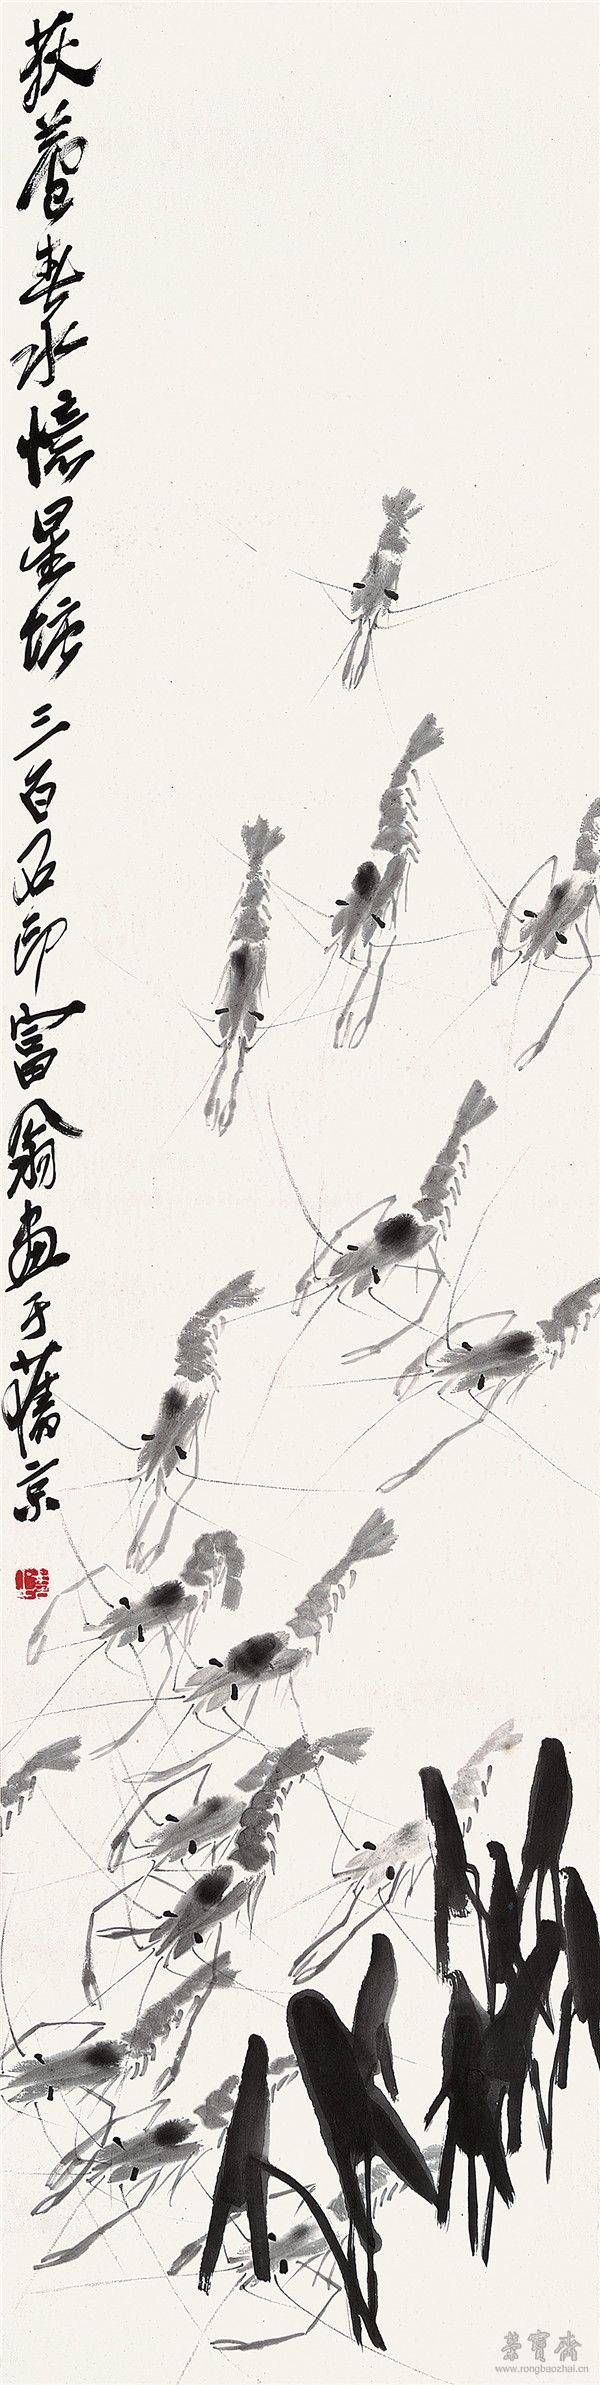 荻芦春水忆星塘 三百石印富翁画于旧京
荣宝斋
www.rongbaozhai.cn